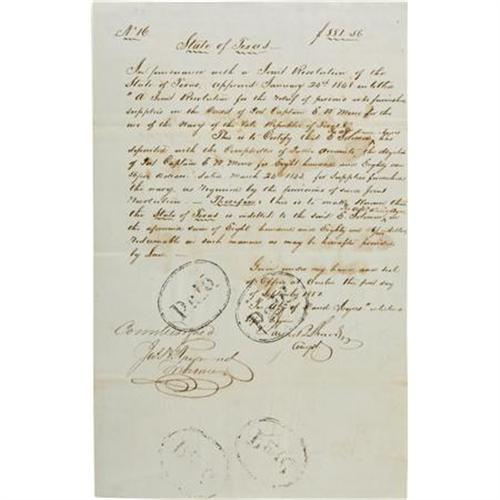 No 16 $881.56
State of Texas
In pursuance with a Joint Resolution of the
State of Texas, Approved January 24th 1848 entitled
"A Joint Resolution for the relief of persons who furnished
supplies on the Drafts of Post Captain E W Moore for the
use of the Navy of the late Republic of Texas"
This is to Certify that E
deposited with the Comptroller of Public Accounts, the
of Post Captain E. W. Moore for Eight hundred and Eighty one
Dollars dated March 24 for supplies furnished
the navy, as required by the provisions of said Joint
Resolution — Therefore, this is to make Known that
the State of Texas is indebted to the said E.
the aforesaid sum of Eight hundred and Eighty one dollars
redeemable in such manner as may be hereafter provided
by Law —
Given under my hand and seal
of Office at Austin the first day
of
David Ayers
Paid
Paid
Countersigned
Jas. H. Raymond
Treasurer
James B. Shaw
Compt
Paid
Paid